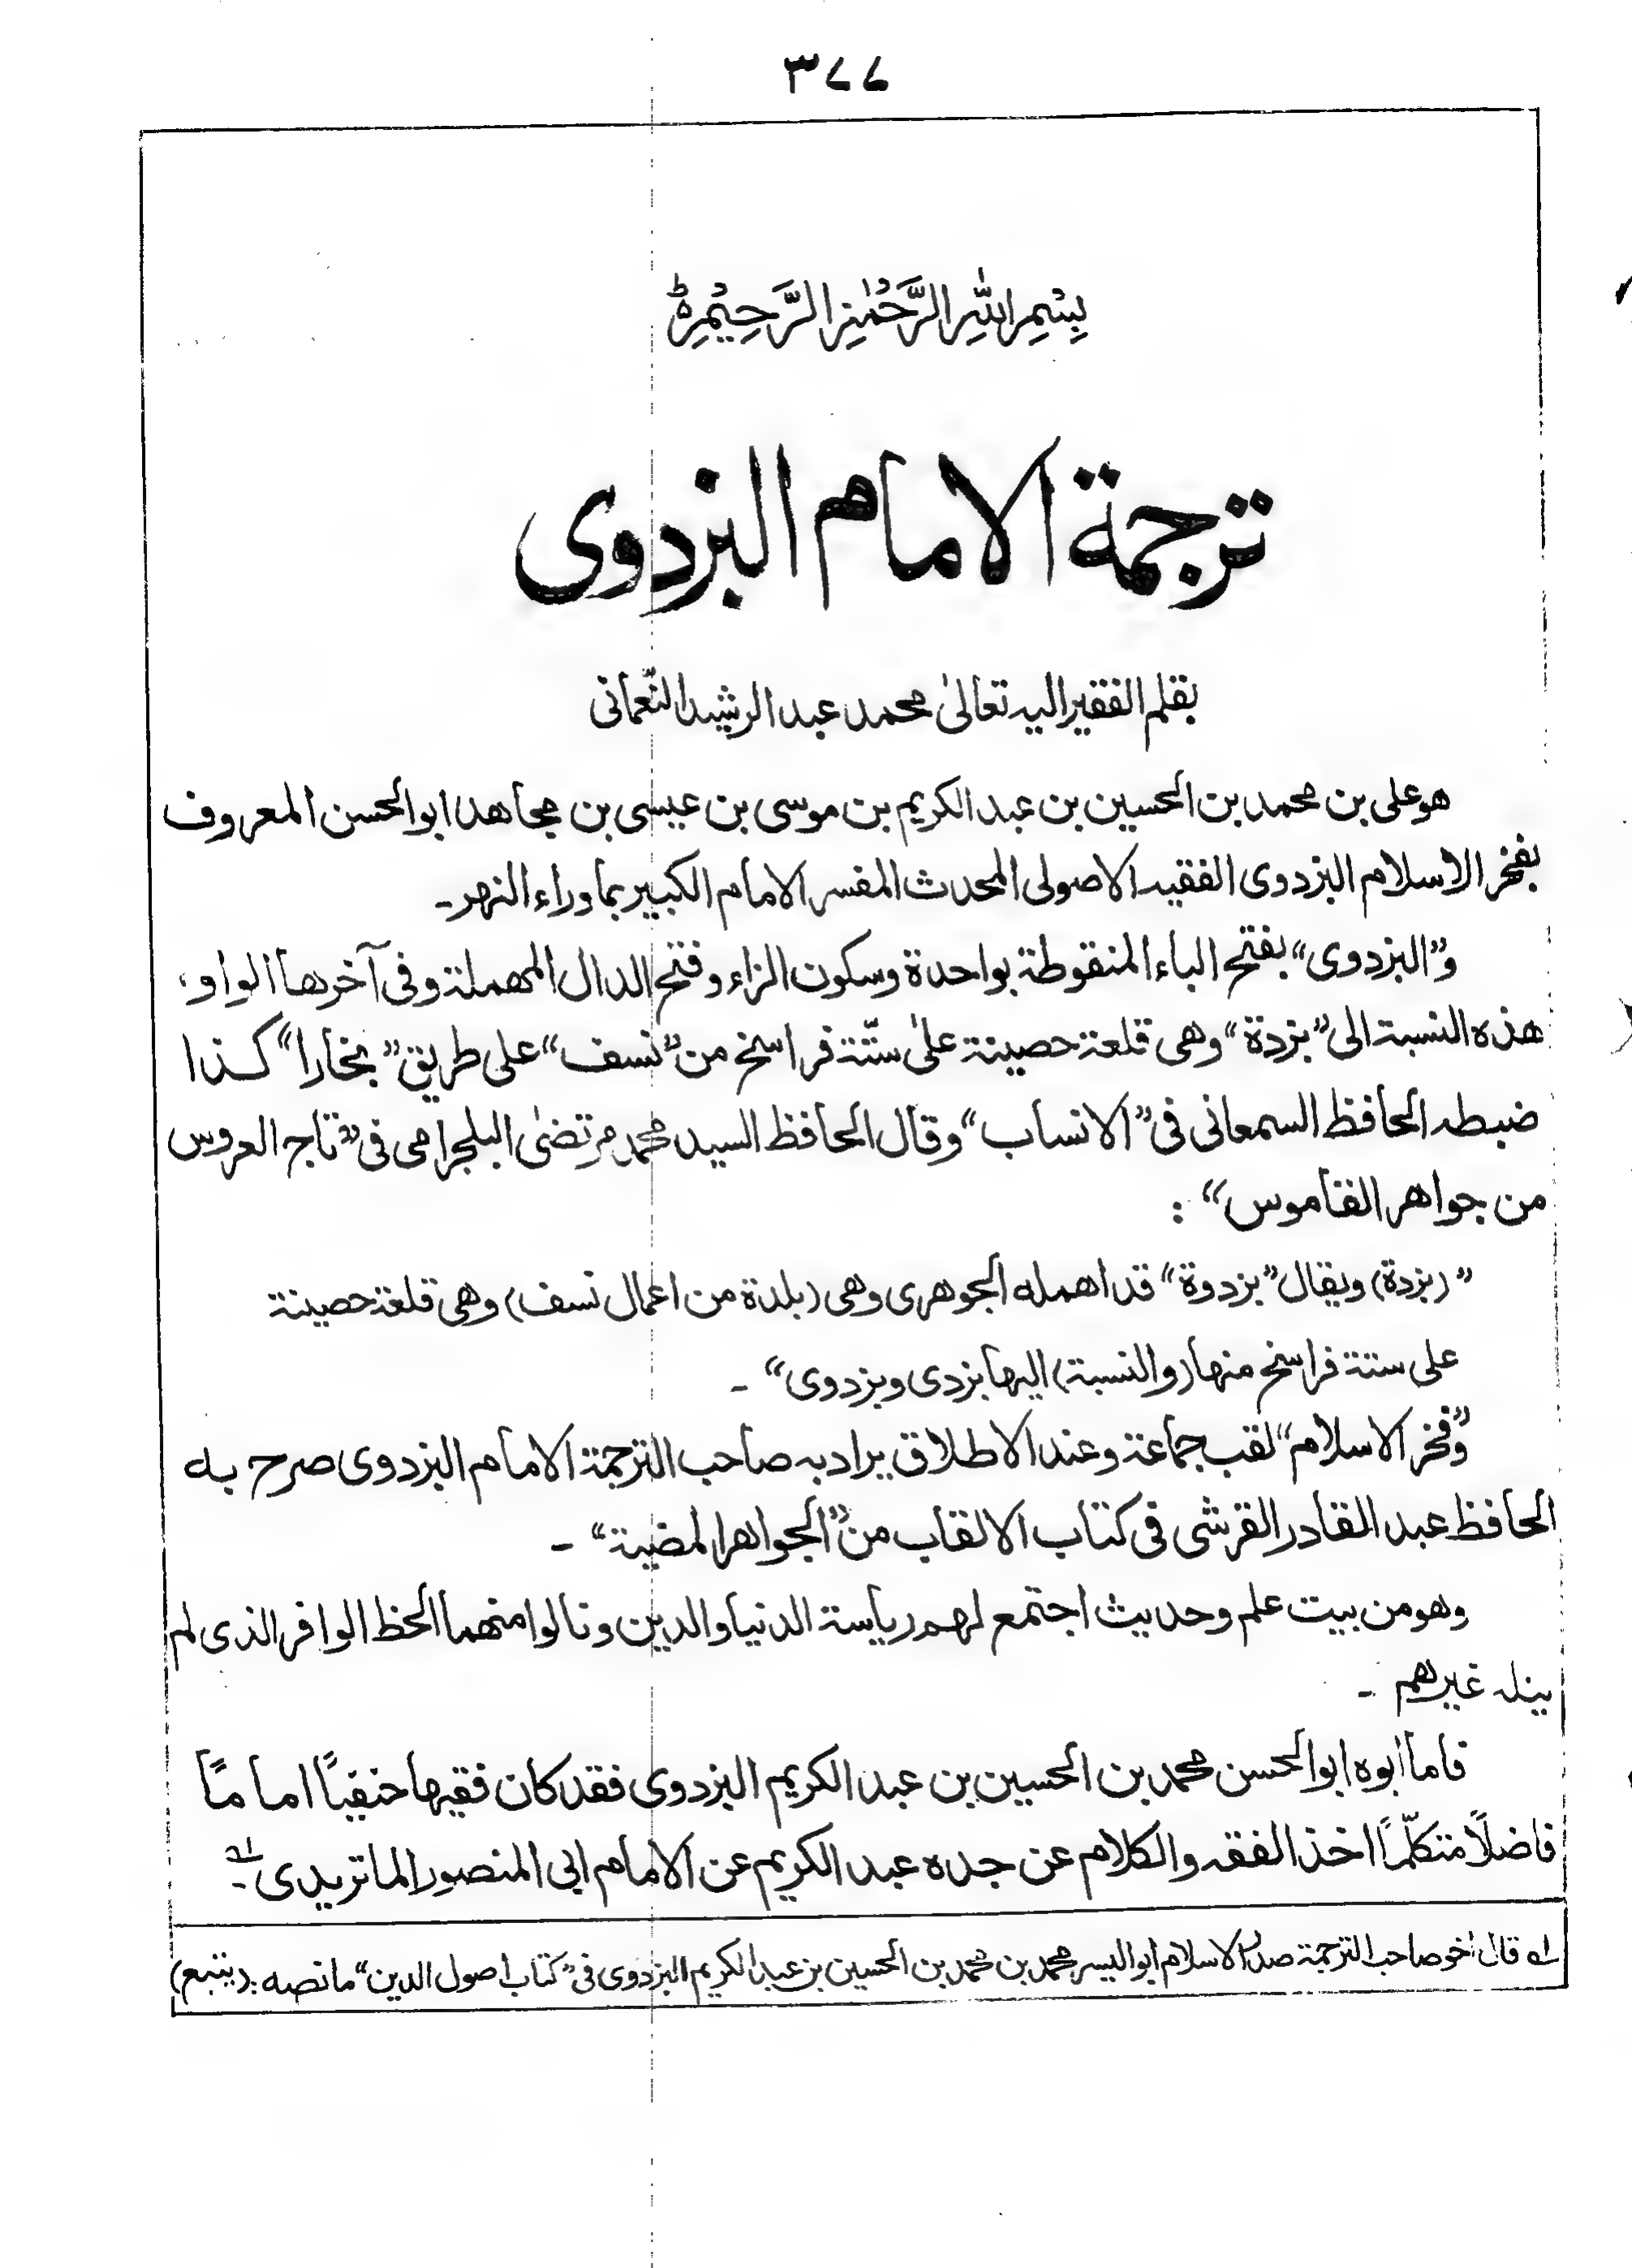 ٣٧٧
بِسْمِ اللهِ الرَّحْمٰنِ الرَّحِيْمِ ط
ترجمة الامام البزدوى
بقلم الفقير اليه تعالىٰ محمد عبد الرشيد النّعمانى
هو على بن محمد بن الحسين بن عبد الكريم بن موسى بن عيسى بن مجاهد ابو الحسن المعروف
بفخر الاسلام البزدوى الفقيه الاصولى المحدث المفسر الامام الكبير بما وراء النهر۔
و”البزدوى“ بفتح الباء المنقوطة بواحدة وسكون الزاء وفتح الدال المهملة وفى آخرها الواو،
هذه النسبة الى ”بزدة“ وهى قلعة حصينة علىٰ ستّة فراسخ من ”نسف“ على طريق ”بخارا“ كذا
ضبطه الحافظ السمعانى فى ”الانساب“ وقال الحافظ السيد محمد مرتضىٰ البلجرامى فى ”تاج العروس
من جواهر القاموس“ :
”(بزدة) ويقال ”بزدوة“ قد اهمله الجوهرى وهى (بلدة من اعمال نسف) وهى قلعة حصينة
على ستة فراسخ منها (والنسبة) اليها بزدى وبزدوى“ ۔
و”فخر الاسلام“ لقب جماعة وعند الاطلاق يراد به صاحب الترجمة الامام البزدوى صرح به
الحافظ عبد القادر القرشى فى كتاب الالقاب من ”الجواهر المضية“ ۔
وهو من بيت علم وحديث اجتمع لهم رياسة الدنيا والدين ونالوا منهما الحظ الوافر الذى لم
ينله غيرهم ۔
فاما ابوه ابو الحسن محمد بن الحسين بن عبد الكريم البزدوى فقد كان فقيها حنفيًا امامًا
فاضلًا متكلّمًا اخذ الفقه والكلام عن جده عبد الكريم عن الامام ابى المنصور الماتريدى۔ ؎۱
؎۱ قال اخو صاحب الترجمة صدر الاسلام ابو اليسر محمد بن محمد بن الحسين بن عبد الكريم البزدوى فى ”كتاب اصول الدين“ ما نصه :. (يتبع)